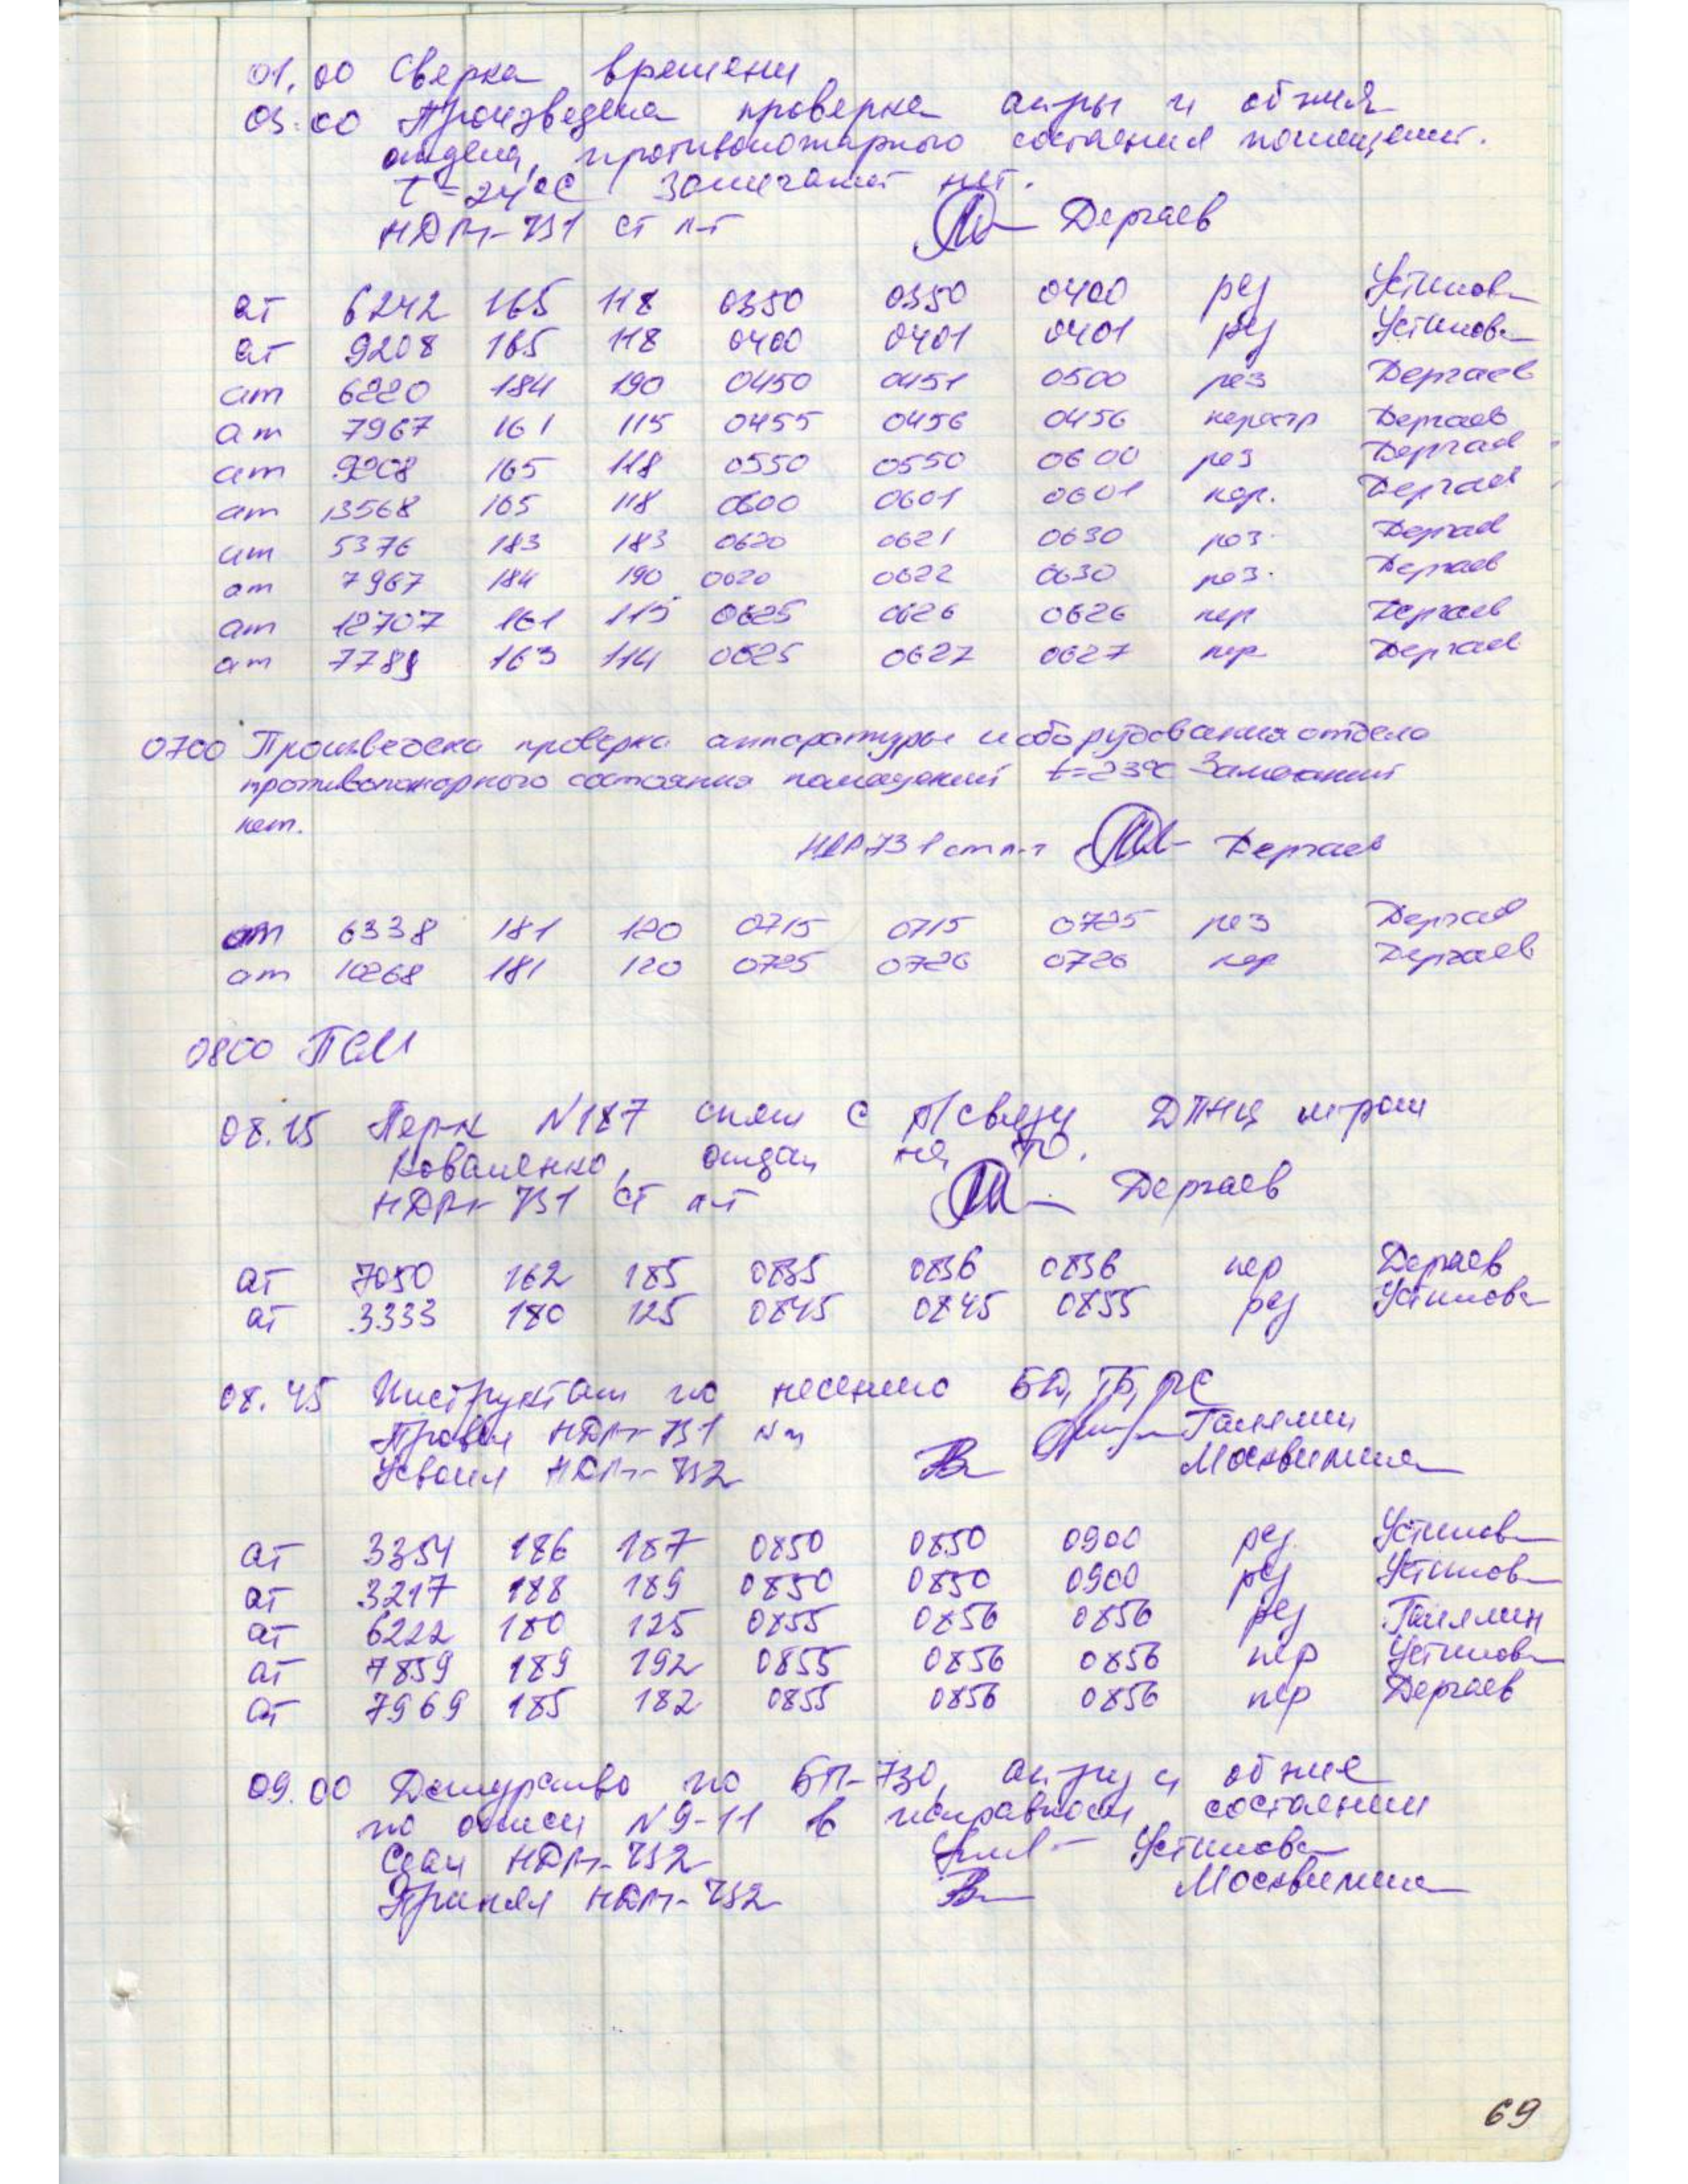 01.00 Сверка времени
03.00 Произведена проверка ап-ры и об-ния
отдела, противопожарного состояния помещений.
t=24°С Замечаний нет.
НДРт-731 ст п-т Дергаев
ат 6242 165 118 0350 0350 0400 рез Устинова
ат 9208 165 118 0400 0401 0401 рез Устинова
ат 6220 184 190 0450 0451 0500 рез Дергаев
ат 7967 161 115 0455 0456 0456 Дергаев
ат 9208 165 118 0550 0550 0600 рез Дергаев
ат 13568 165 118 0600 0601 0601 Дергаев
ат 5376 183 183 0620 0621 0630 рез. Дергаев
ат 7967 184 190 0620 0622 0630 рез. Дергаев
ат 12707 161 115 0625 0626 0626 пер Дергаев
ат 163 114 0625 0627 0627 пер Дергаев
0700 Произведена проверка аппаратуры и оборудования отдела
противопожарного состояния помещений t=23°С Замечаний
нет.
НДР 731 ст п-т Дергаев
ат 6338 181 120 0715 0715 0725 рез Дергаев
ат 10268 181 120 0725 0726 0726 пер Дергаев
0800 ПСМ
08.15 Пер-к N187 снят с р/связи ДПНЦ
Коваленко, отдан на ТО.
НДРт-731 ст п-т Дергаев
ат 7050 162 185 0835 0836 0836 пер Дергаев
ат 3333 180 125 0845 0845 0855 рез Устинова
08.45 Инструктаж по несению БД, ТБ, РС
Провел НДРт-731 Галямин
Усвоил НДРт-732 Москвитина
ат 3354 186 187 0850 0850 0900 рез Устинова
ат 3217 188 189 0850 0850 0900 рез Устинова
ат 6222 180 125 0855 0856 0856 рез Галямин
ат 7859 189 192 0855 0856 0856 пер Устинова
ат 7969 185 182 0855 0856 0856 пер Дергаев
09.00 Дежурство по БП-730, ап-ру и об-ние
по описи N9-11 в исправном состоянии
Сдал НДРт-732 Устинова
Принял НДРт-732 Москвитина
69